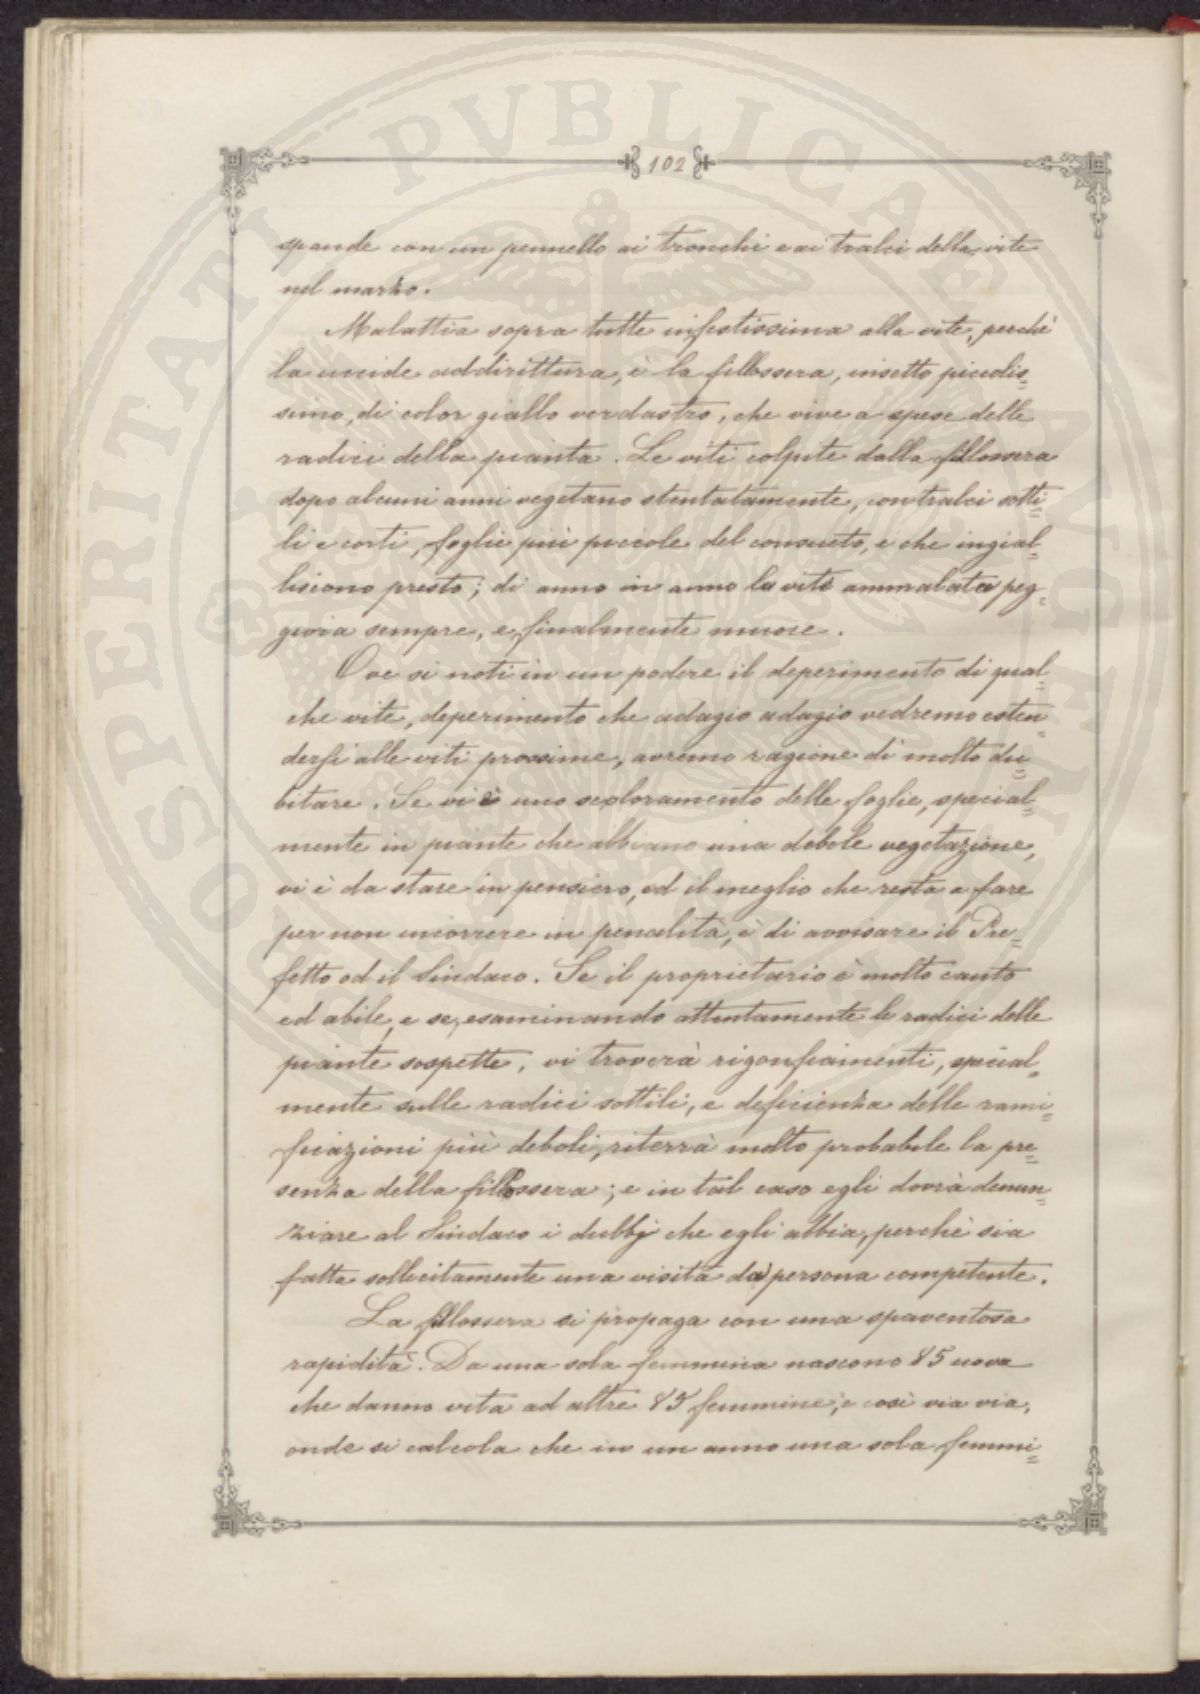 102
spande con un pennello ai tronchi e ai tralci della vite
nel marzo.
Malattia sopra tutte infestissima alla vite, perchè
la uccide addirittura, è la fillossera, insetto piccolis=
simo, di color giallo verdastro, che vive a spese delle
radici della pianta. Le viti colpite dalla fillossera
dopo alcuni anni vegetano stentatamente, con tralci sotti=
li e corti, foglie più piccole del consueto, e che ingial=
liscono presto; di anno in anno la vite ammalata peg=
giora sempre, e finalmente muore.
Ove si noti in un podere il deperimento di qual=
che vite, deperimento che adagio adagio vedremo esten=
dersi alle viti prossime, avremo ragione di molto du=
bitare. Se vi è uno scoloramento delle foglie, special=
mente in piante che abbiano una debole vegetazione,
vi è da stare in pensiero, ed il meglio che resta a fare
per non incorrere in penalità, è di avvisare il Pre=
fetto od il Sindaco. Se il proprietario è molto cauto
ed abile, e se, esaminando attentamente le radici delle
piante sospette, vi troverà rigonfiamenti, special=
mente sulle radici sottili, e deficienza delle rami=
ficazioni più deboli, riterrà molto probabile la pre=
senza della fillossera; e in tal caso egli dovrà denun=
ziare al Sindaco i dubbj che egli abbia, perchè sia
fatta sollecitamente una visita da persona competente.
La fillossera si propaga con una spaventosa
rapidità. Da una sola femmina nascono 85 uova
che danno vita ad altre 85 femmine; e così via via,
onde si calcola che in un anno una sola femmi=
PROSPERITATI PVBLICAE AVGENDAE